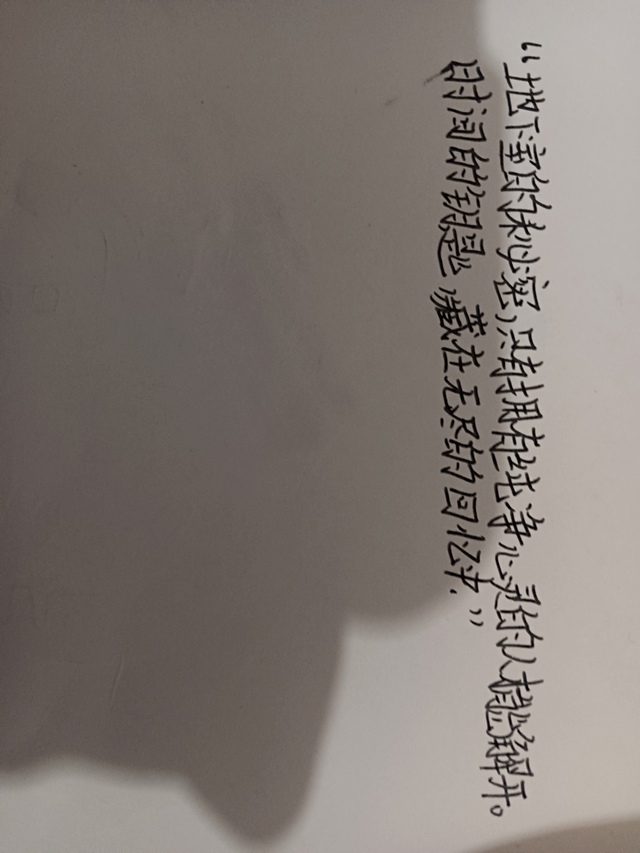 “地下室的秘密，只有拥有纯净心灵的人才能解开。
时间的钥匙，藏在无尽的回忆中.”